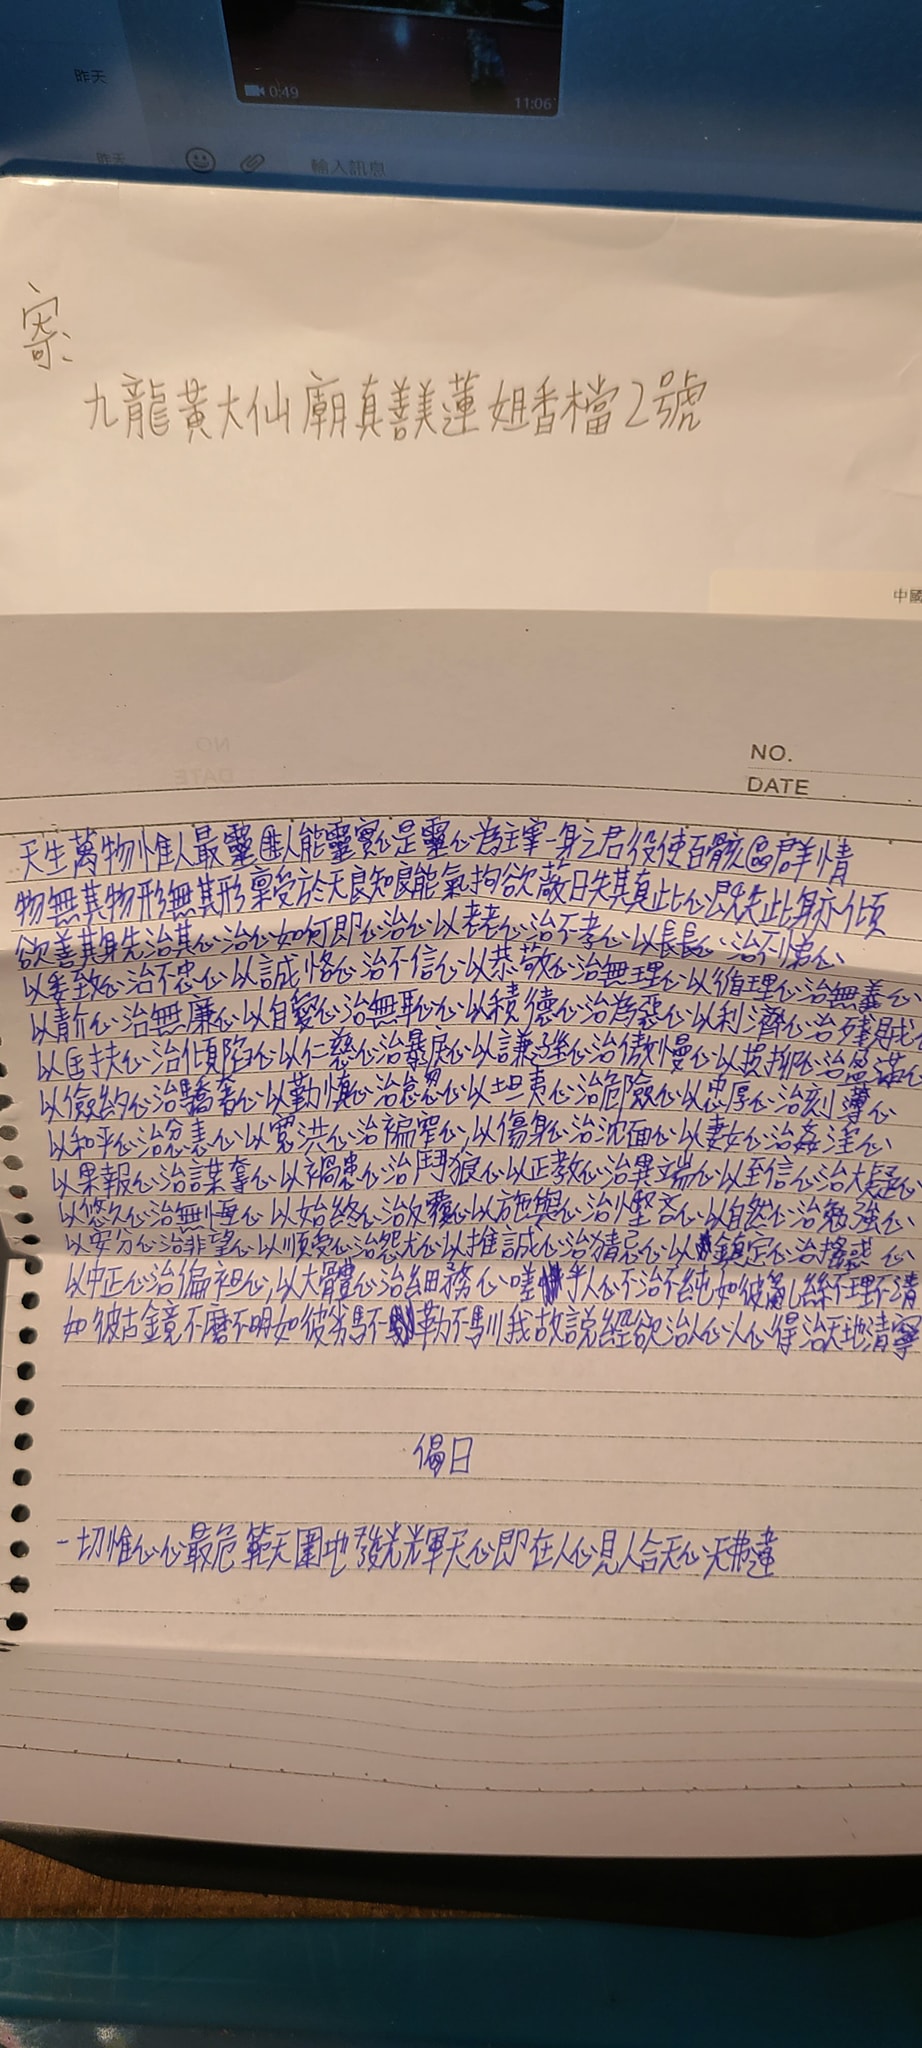 昨天
0:49
11:06
昨天
輸入訊息
寄
九龍黃大仙廟真善美蓮姐香檔2號
中國
NO.
DATE
天生萬物惟人最靈匪人能靈實心是靈心為主宰一身之君役使百骸區區群情
物無其物形無其形稟受於天良知良能氣拘欲蔽日失其真此心既失此身亦傾
欲善其身先治其心治心如何即心治心以老老心治不孝心以長長心治不悌心
以委致心治不忠心以誠恪心治不信心以恭敬心治無理心以循理心治無義心
以清介心治無廉心以自愛心治無恥心以積德心治為惡心以利濟心治殘賊
以匡扶心治傾陷心以仁慈心治暴戾心以謙遜心治傲慢心以損抑心治盈滿心
以儉約心治驕奢心以勤慎心治怠忽心以坦夷心治危險心以忠厚心治刻薄心
以和平心治忿恚心以寬洪心治褊窄心以傷身心治沈面心以妻女心治姦淫心
以果報心治謀奪心以禍患心治鬥狼心以正教心治異端心以至信心治大疑心
以悠久心治無恆心以始終心治反覆心以施與心治慳吝心以自然心治勉強心
以安分心治非望心以順受心治怨尤心以推誠心治猜忌心以鎮定心治搖惑心
以中正心治偏袒心以大體心治細務心嗟乎人心不治不純如彼亂絲不理不清
如彼古鏡不磨不明如彼劣馬不勒不馴我故說經欲治人心人心得治天地清寧
偈曰
一切惟心心最危範天圍地發光輝天心即在人心見人合天心天弗違